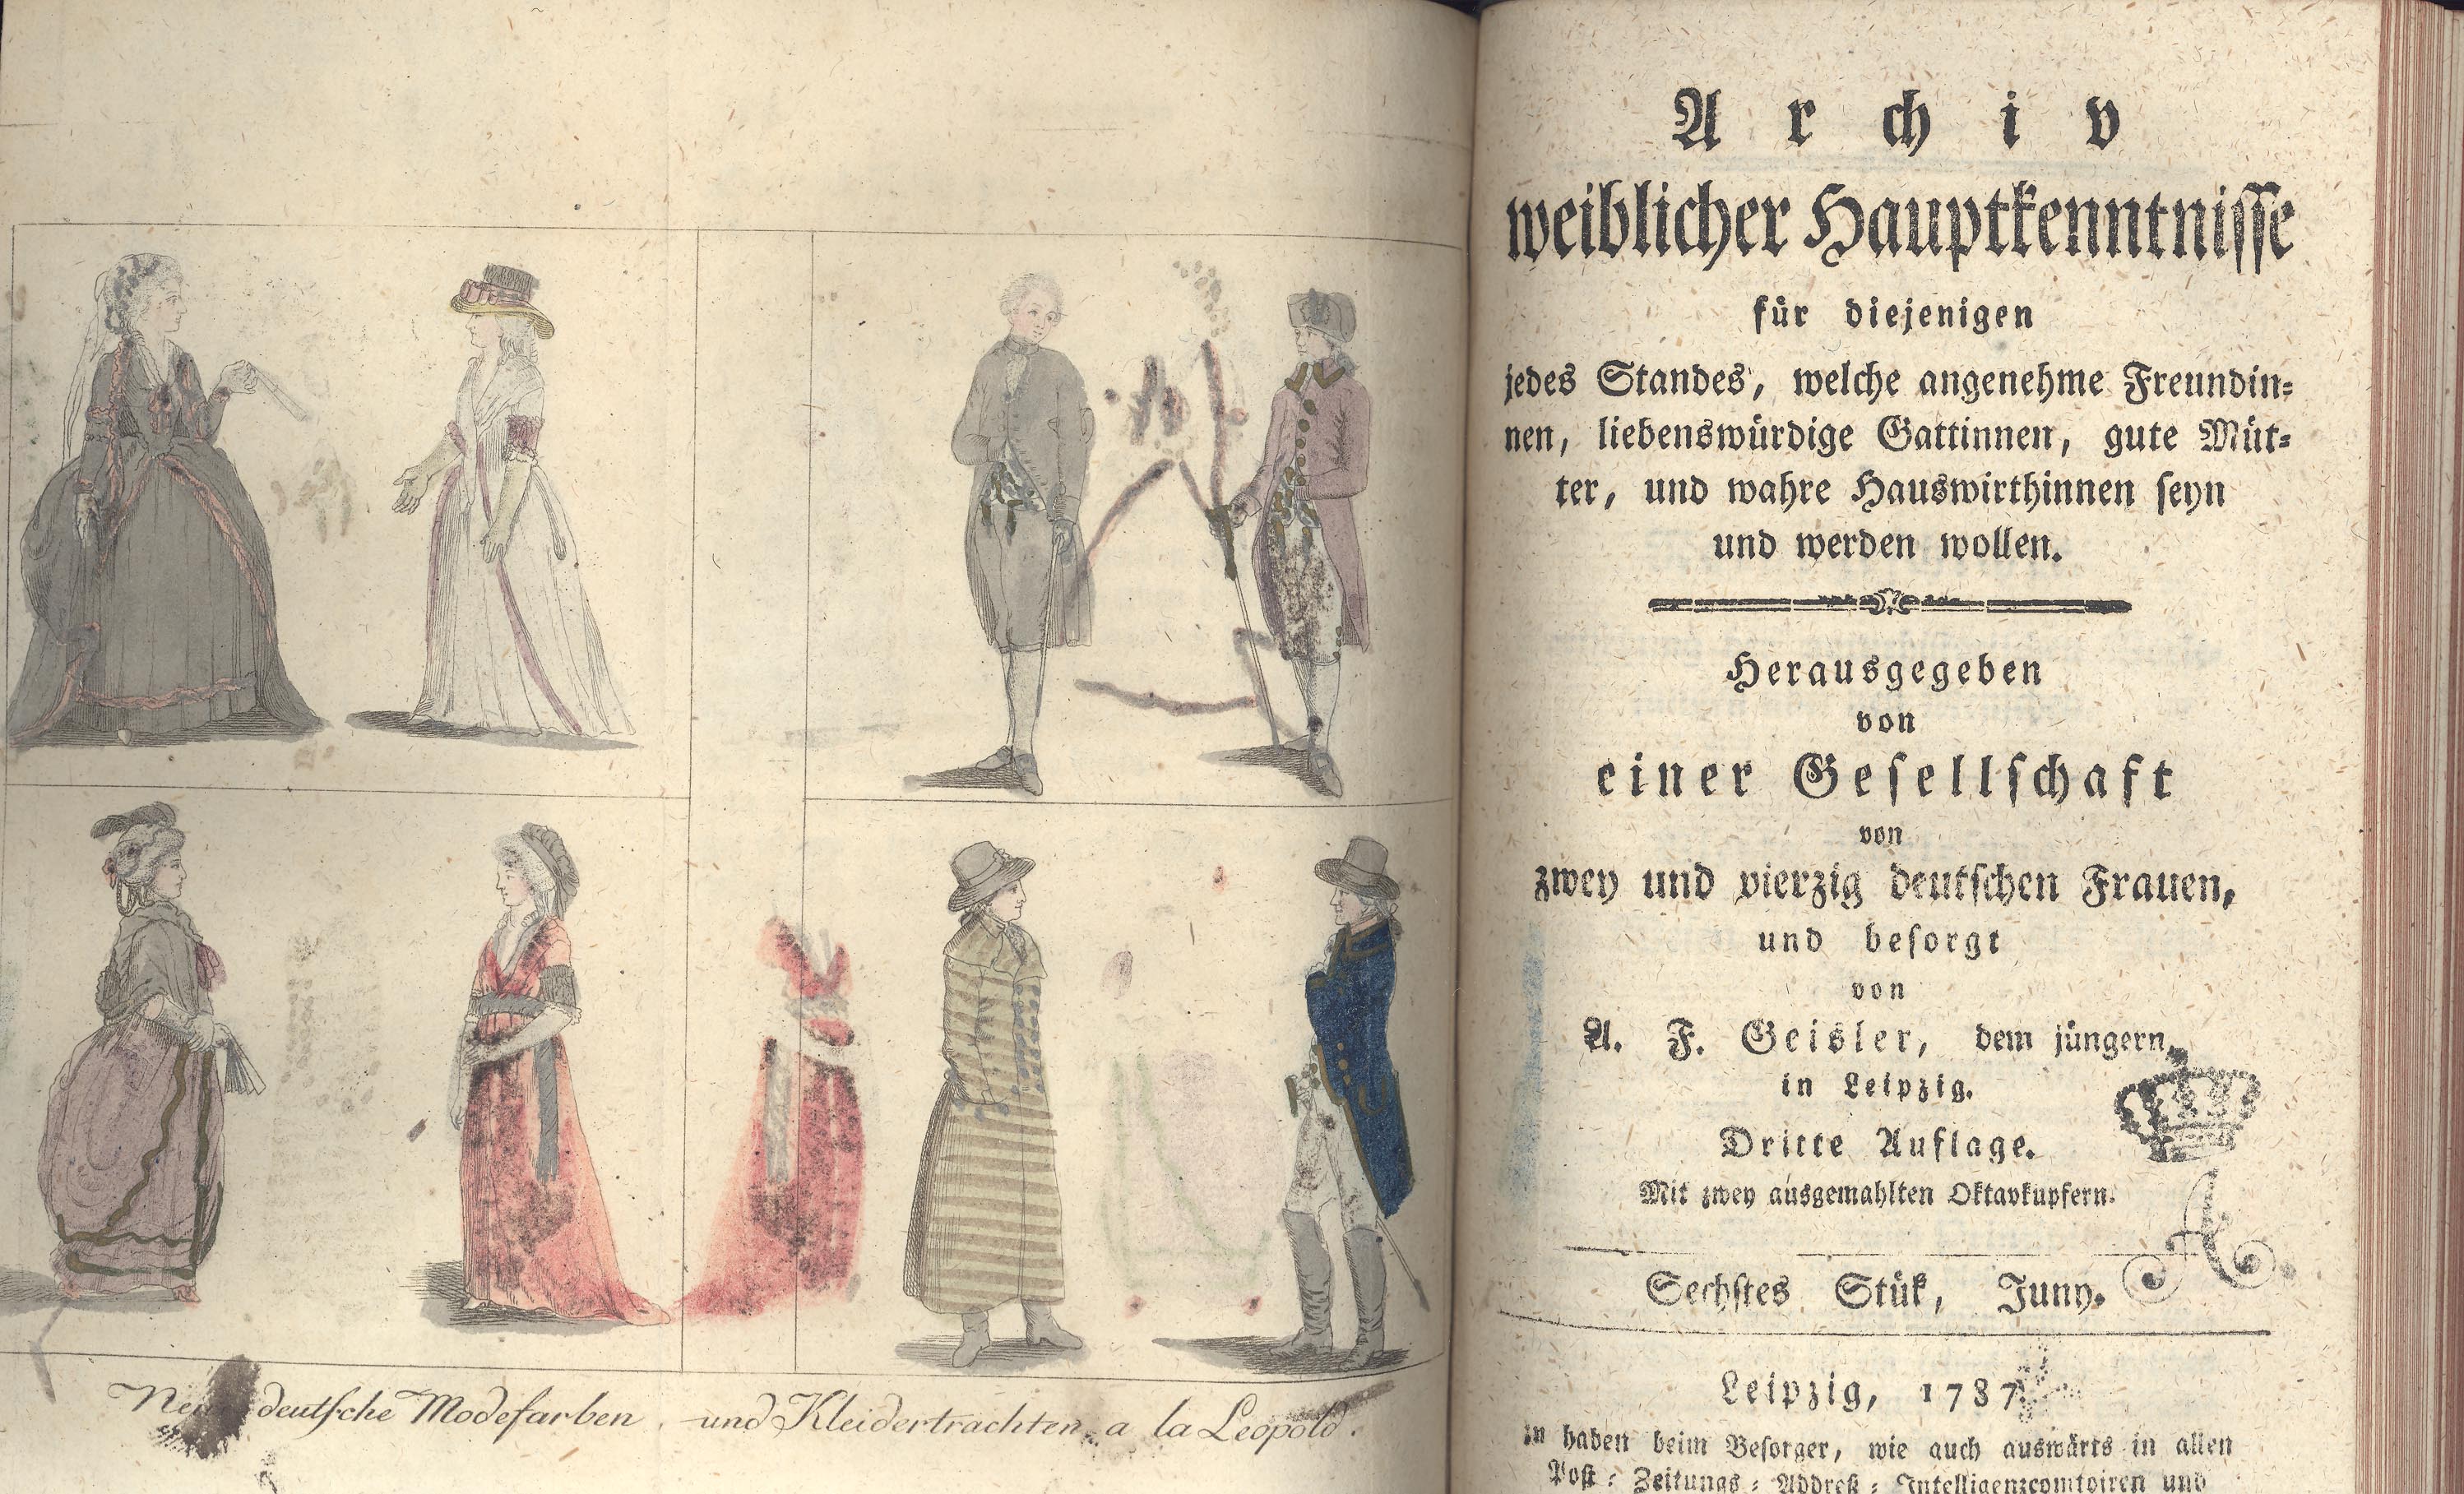 Neue deutsche Modefarben und Kleidertrachten a la Leopold.
Archiv
weiblicher Hauptkenntnisse
für diejenigen
jedes Standes, welche angenehme Freundin-
nen, liebenswürdige Gattinnen, gute Müt-
ter, und wahre Hauswirthinnen seyn
und werden wollen.
Herausgegeben
von
einer Gesellschaft
von
zwey und vierzig deutschen Frauen,
und besorgt
von
A. F. Geisler, dem jüngern,
in Leipzig.
Dritte Auflage.
Mit zwey ausgemahlten Oktavkupfern.
A.
Sechstes Stük, Juny.
Leipzig, 1787
zu haben beim Besorger, wie auch auswärts in allen
Post- Zeitungs- Addreß- Intelligenzcomtoiren und